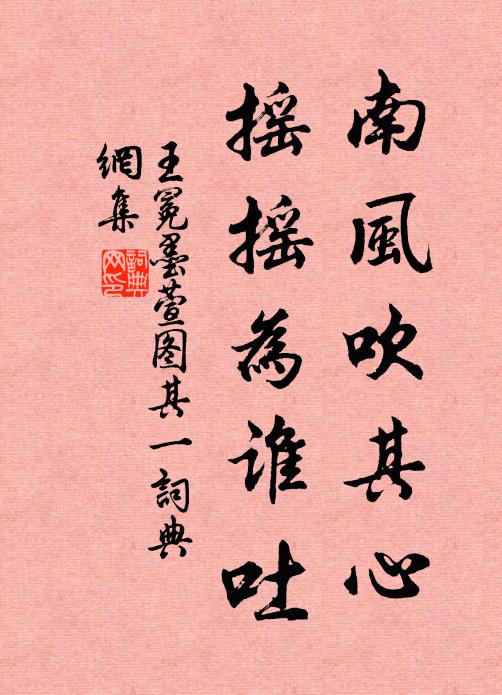 南風吹其心
搖搖為誰吐
王冕墨萱图其一 詞典
網集
詞典网印